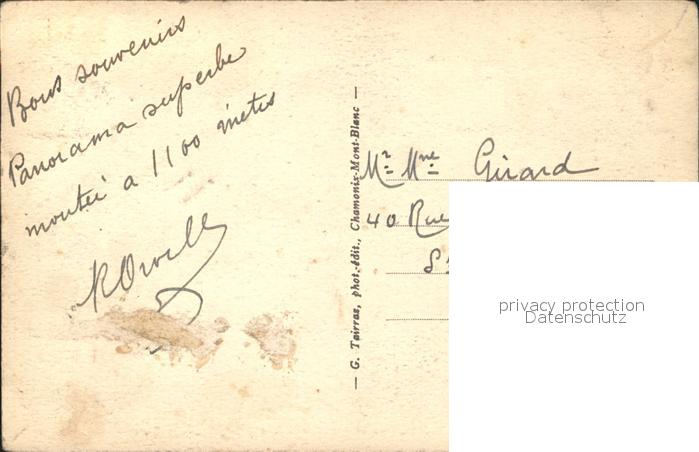 Bons souvenirs
Panorama superbe
montée a 1100 mètres
— G. Tairraz, phot.-édit., Chamonix-Mont-Blanc —
Mr Mme Girard
40 Rue
privacy protection
Datenschutz